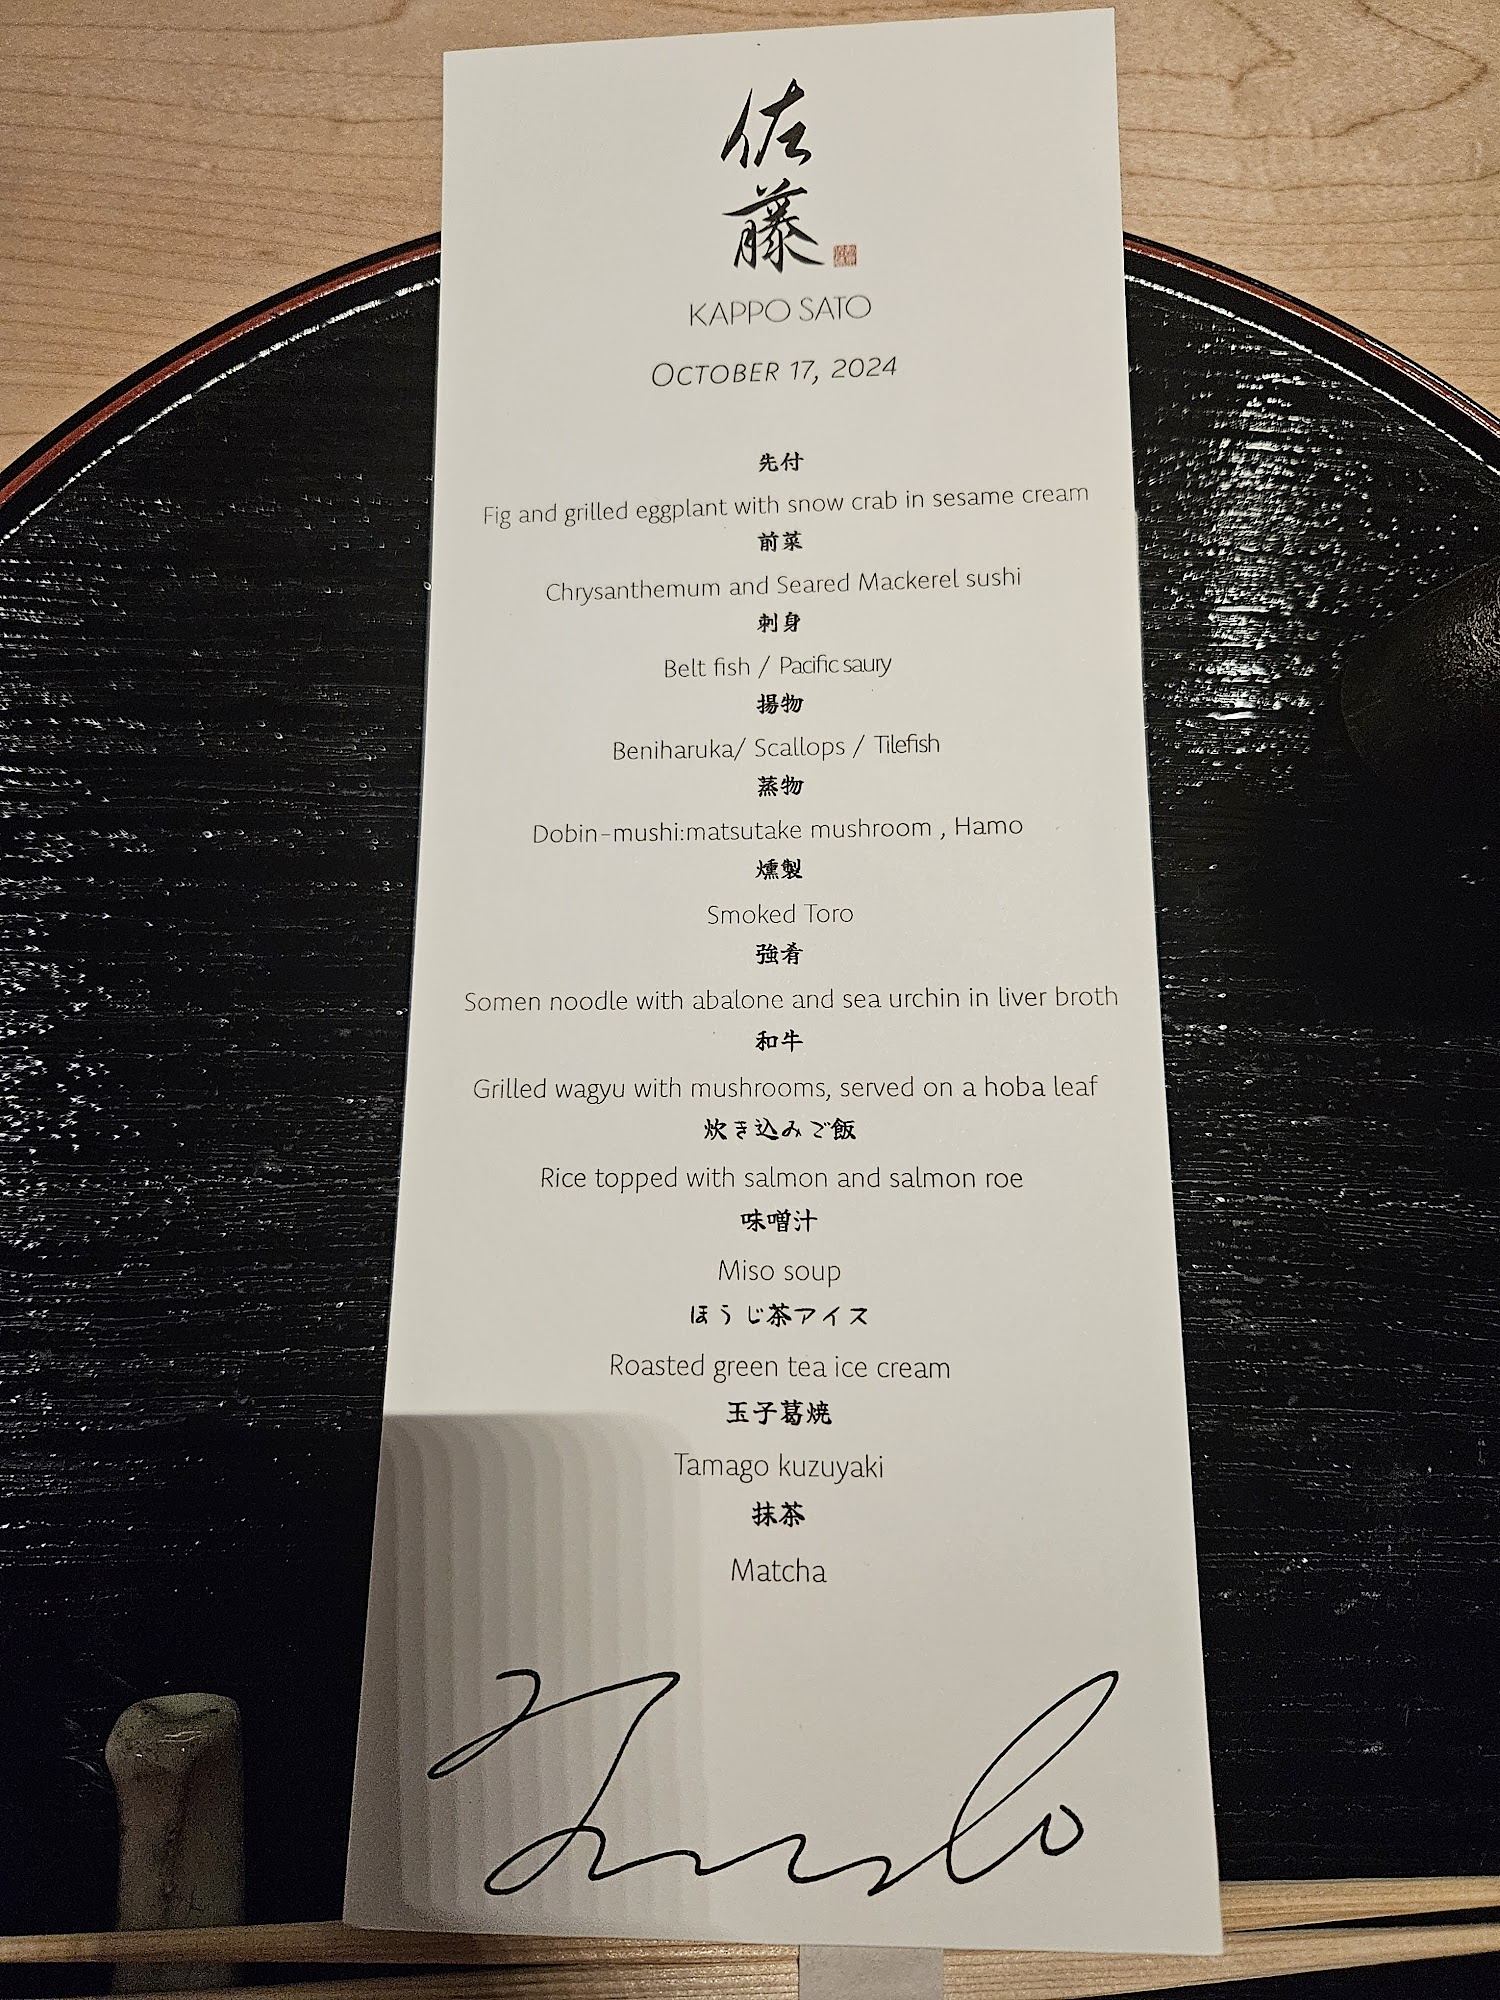 佐藤
KAPPO SATO
OCTOBER 17, 2024
先付
Fig and grilled eggplant with snow crab in sesame cream
前菜
Chrysanthemum and Seared Mackerel sushi
刺身
Belt fish / Pacific saury
揚物
Beniharuka/ Scallops / Tilefish
蒸物
Dobin-mushi:matsutake mushroom , Hamo
燻製
Smoked Toro
強肴
Somen noodle with abalone and sea urchin in liver broth
和牛
Grilled wagyu with mushrooms, served on a hoba leaf
炊き込みご飯
Rice topped with salmon and salmon roe
味噌汁
Miso soup
ほうじ茶アイス
Roasted green tea ice cream
玉子葛焼
Tamago kuzuyaki
抹茶
Matcha